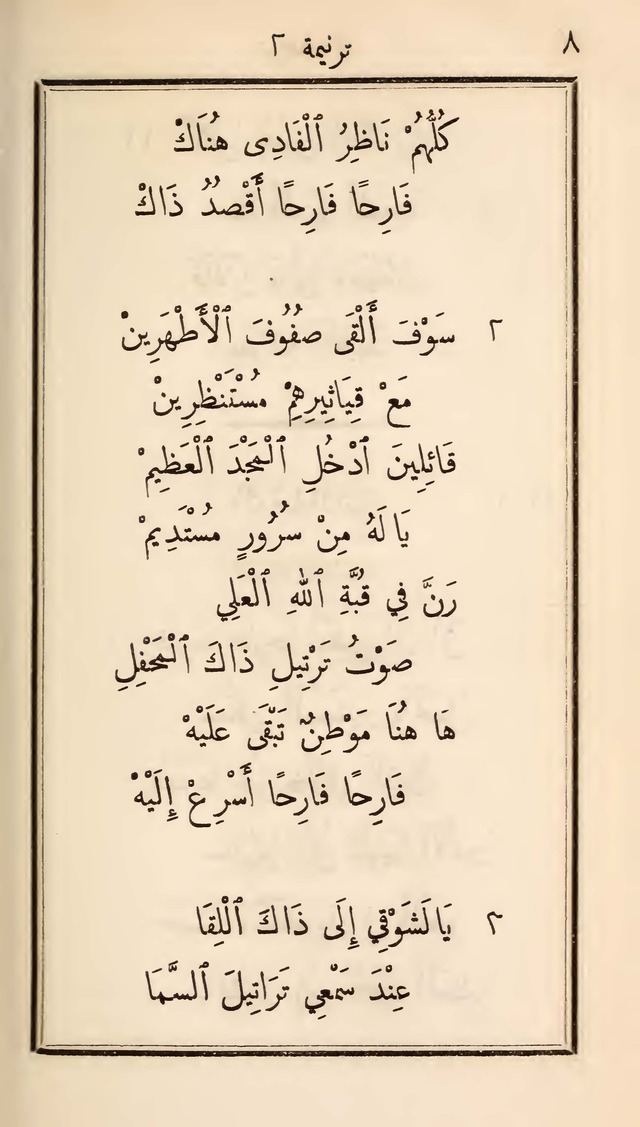 ٨
ترنيمة ٢
كُلُّهُمْ نَاظِرُ ٱلْفَادِى هُنَاكْ
فَارِحًا فَارِحًا أَقْصُدُ ذَاكْ
٢ سَوْفَ أَلْقَى صُفُوفَ ٱلْأَطْهَرِينْ
مَعْ قِيَاثِيرِهِمْ مُسْتَنْظِرِينْ
قَائِلِينَ ٱدْخُلِ ٱلْمَجْدَ ٱلْعَظِيمْ
يَا لَهُ مِنْ سُرُورٍ مُسْتَدِيمْ
رَنَّ فِي قُبَّةِ ٱللهِ ٱلْعَلِي
صَوْتُ تَرْتِيلِ ذَاكَ ٱلْمَحْفِلِ
هَا هُنَا مَوْطِنٌ تَبْقَى عَلَيْهْ
فَارِحًا فَارِحًا أَسْرِعْ إِلَيْهْ
٣ يَا لَشَوْقِي إِلَى ذَاكَ ٱللِّقَا
عِنْدَ سَمْعِي تَرَاتِيلَ ٱلسَّمَا